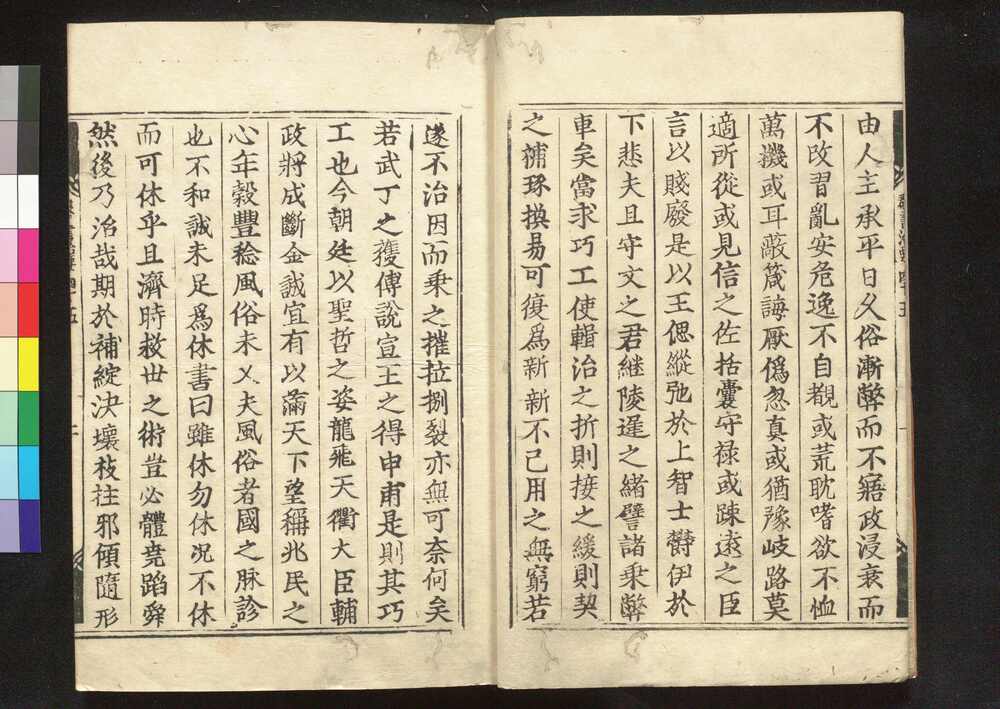 由人主承平日久俗漸弊而不寤政浸衰而
不改習亂安危逸不自覩或荒耽嗜欲不恤
萬機或耳蔽箴誨厭僞忽真或猶豫岐路莫
適所從或見信之佐括囊守禄或疎遠之臣
言以賤廢是以王偲縱弛於上智士欝伊於
下悲夫且守文之君継陵遲之緒譬諸乗弊
車矣當求巧工使輯治之折則接之緩則契
之補琢換易可復爲新新不已用之無窮若
遂不治因而乗之摧拉捌裂亦無可奈何矣
若武丁之獲傳說宣王之得申甫是則其巧
工也今朝廷以聖哲之姿龍飛天衢大臣輔
政將成斷金誠宜有以滿天下望稱兆民之
心年穀豐稔風俗未乂夫風俗者國之脉診
也不和誠未足爲休書曰雖休勿休况不休
而可休乎且濟時救世之術豈必體堯蹈舜
然後乃治哉期於補綻決壞枝拄邪傾隨形